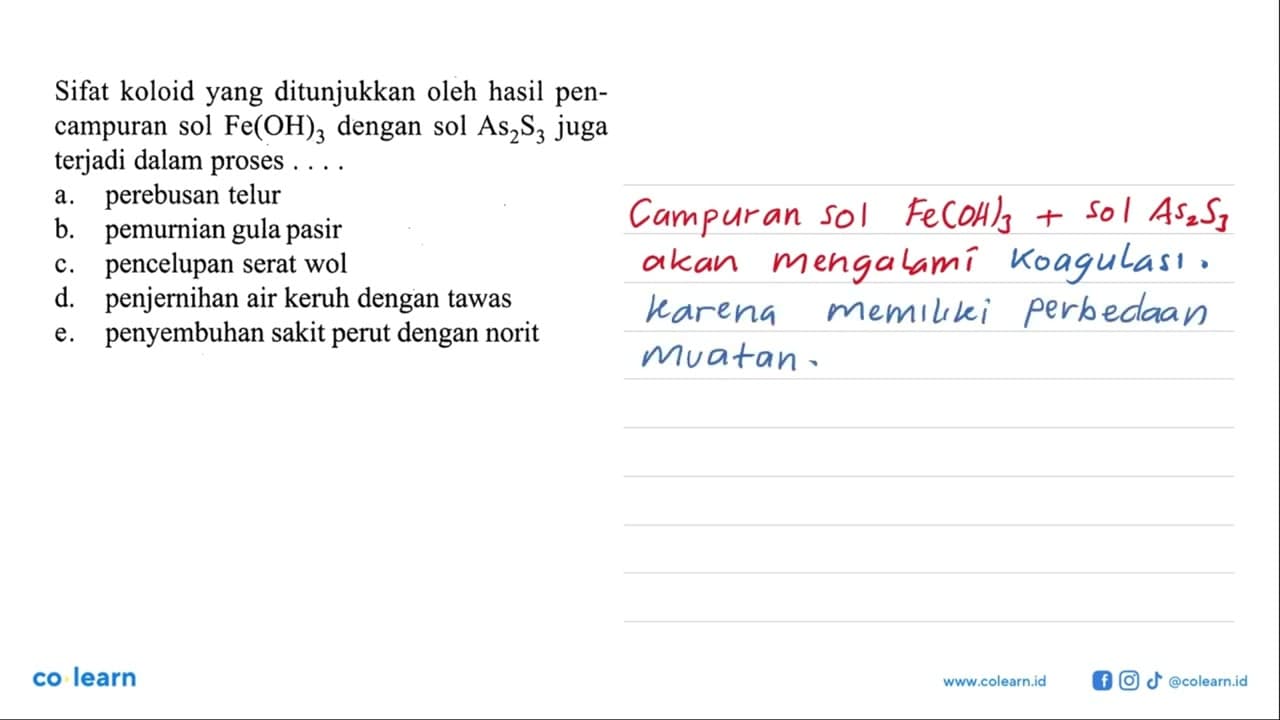 Sifat koloid yang ditunjukkan oleh hasil pen-
campuran sol Fe(OH)₃ dengan sol As₂S₃ juga
terjadi dalam proses . . . .
a. perebusan telur
b. pemurnian gula pasir
c. pencelupan serat wol
d. penjernihan air keruh dengan tawas
e. penyembuhan sakit perut dengan norit
Campuran sol Fe(OH)₃ + sol As₂S₃
akan mengalami koagulasi.
karena memiliki perbedaan
muatan.
co learn
www.colearn.id
@colearn.id